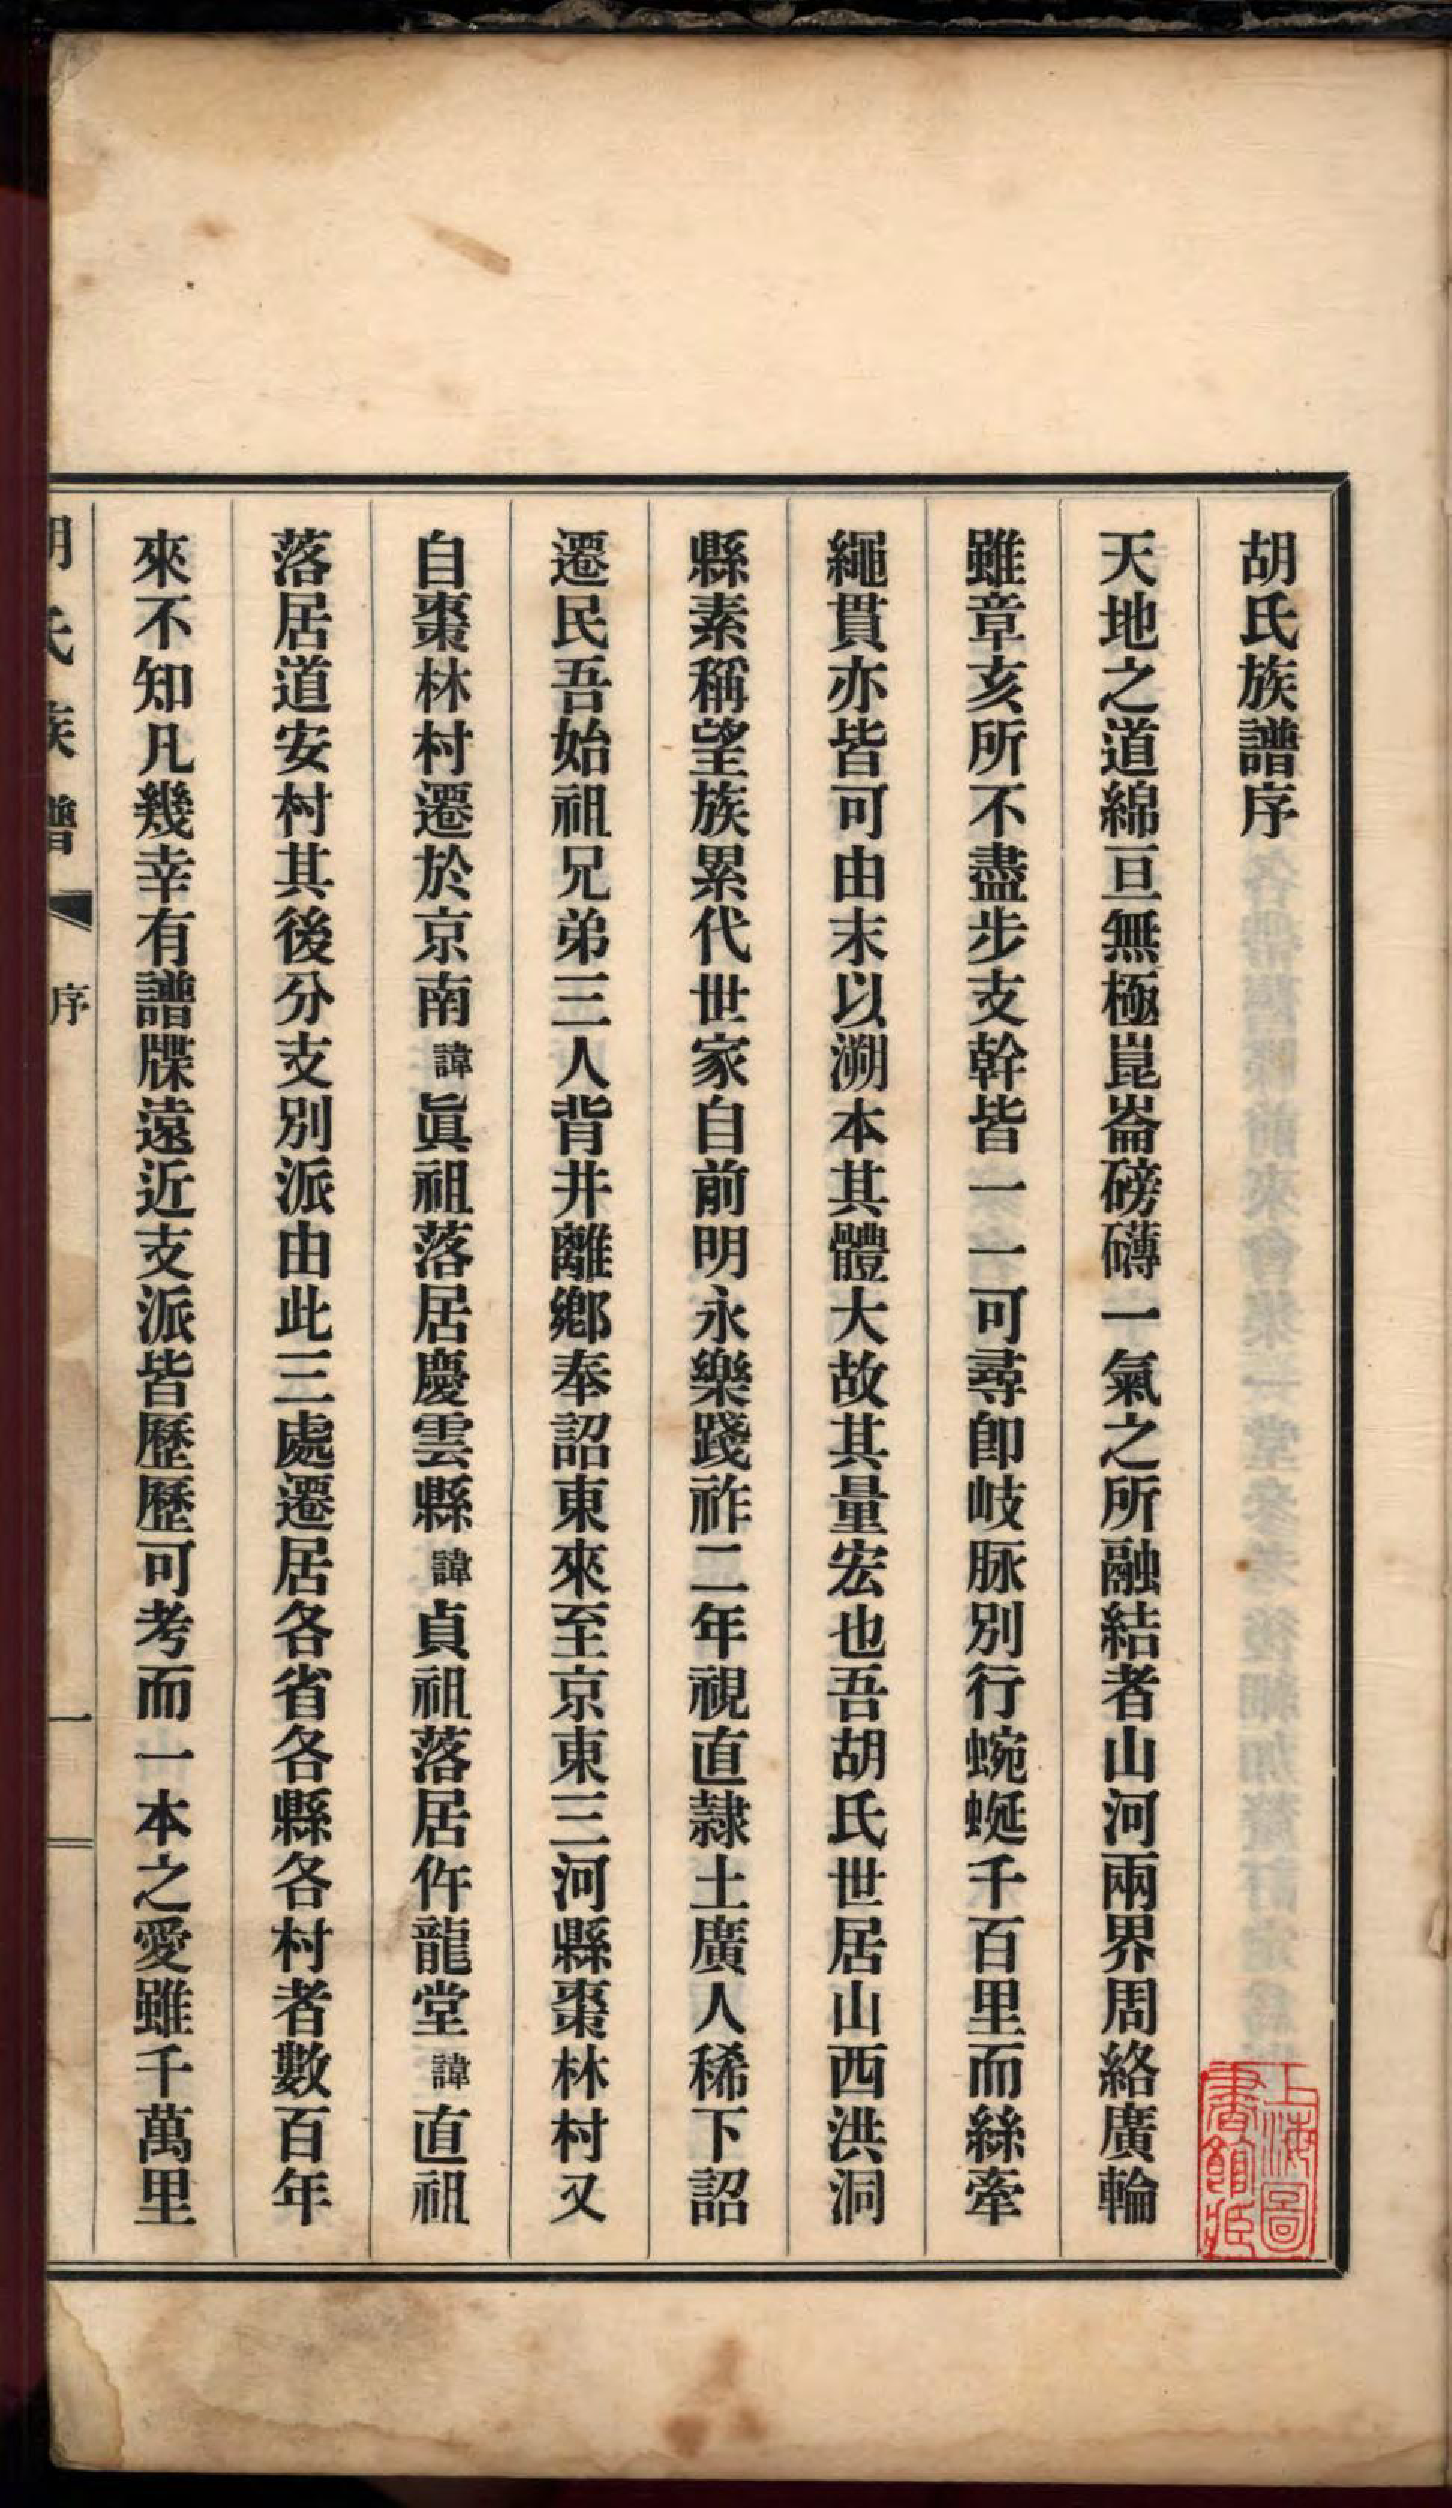 胡氏族譜序
天地之道綿亘無極崑崙磅礴一氣之所融結者山河兩界周絡廣輪
雖章亥所不盡步支幹皆一一可尋卽岐脉別行蜿蜒千百里而絲牽
繩貫亦皆可由末以溯本其體大故其量宏也吾胡氏世居山西洪洞
縣素稱望族累代世家自前明永樂踐祚二年視直隸土廣人稀下詔
遷民吾始祖兄弟三人背井離鄉奉詔東來至京東三河縣棗林村又
自棗林村遷於京南諱眞祖落居慶雲縣諱貞祖落居仵龍堂諱直祖
落居道安村其後分支別派由此三處遷居各省各縣各村者數百年
來不知凡幾幸有譜牒遠近支派皆歷歷可考而一本之愛雖千萬里
胡氏族譜 序 一
上海圖書館藏